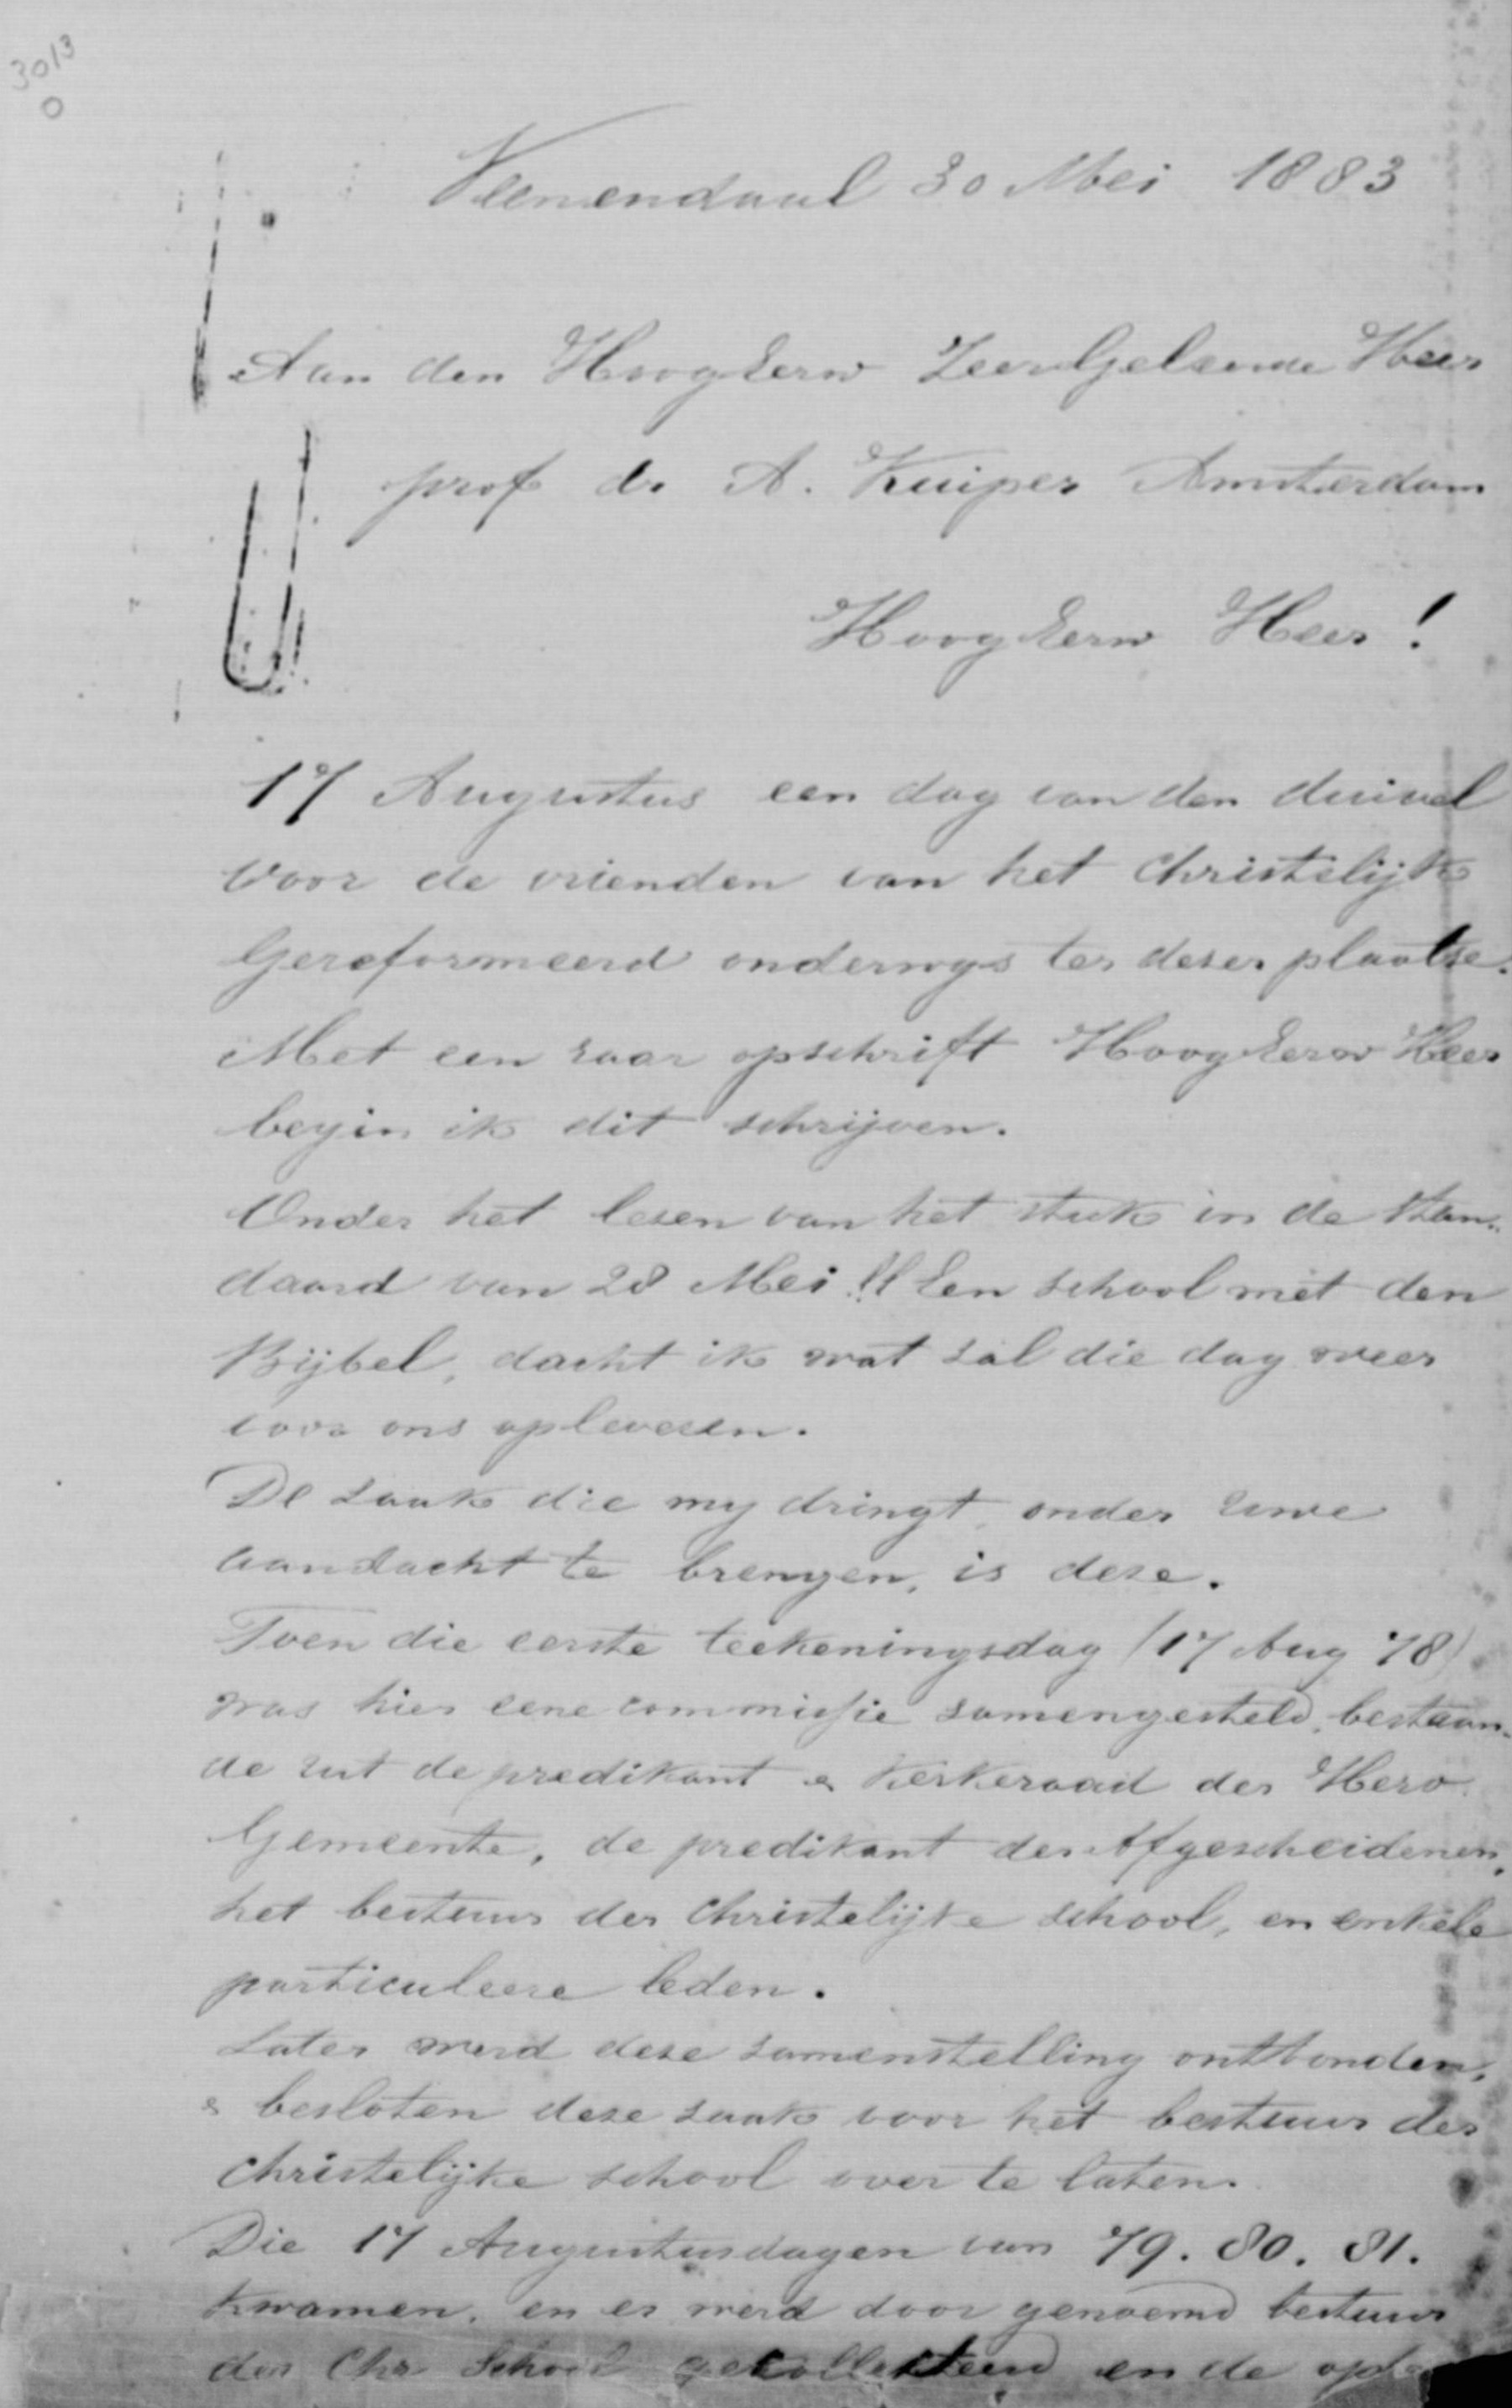 3013
0
Veenendaal 30 Mei 1883
Aan den HoogEerw ZeerGeleerde Heer
prof dr A. Kuiper Amsterdam
HoogEerw Heer!
17 Augustus een dag van den duivel
voor de vrienden van het Christelijk
Gereformeerd onderwys ter dezer plaatse.
Met een raar opschrift HoogEerw Heer
begin ik dit schrijven.
Onder het lezen van het stuk in de Stan-
daard van 28 Mei ll Een school met den
Bijbel, dacht ik wat zal die dag weer
voor ons opleveren.
De zaak die my dringt onder Uwe
aandacht te brengen, is deze.
Toen die eerste teekeningsdag (17 Aug 78)
was hier eene commissie samengesteld, bestaan-
de uit de predikant & Kerkeraad der Herv
Gemeente, de predikant der Afgescheidenen,
het bestuur der Christelijke school, en enkele
particuleere leden.
Later werd deze samenstelling ontbonden,
& besloten deze zaak voor het bestuur der
Christelijke school over te laten.
Die 17 Augustusdagen van 79. 80. 81.
kwamen, en er werd door genoemd bestuur
der Chr School gekollekteerd en de